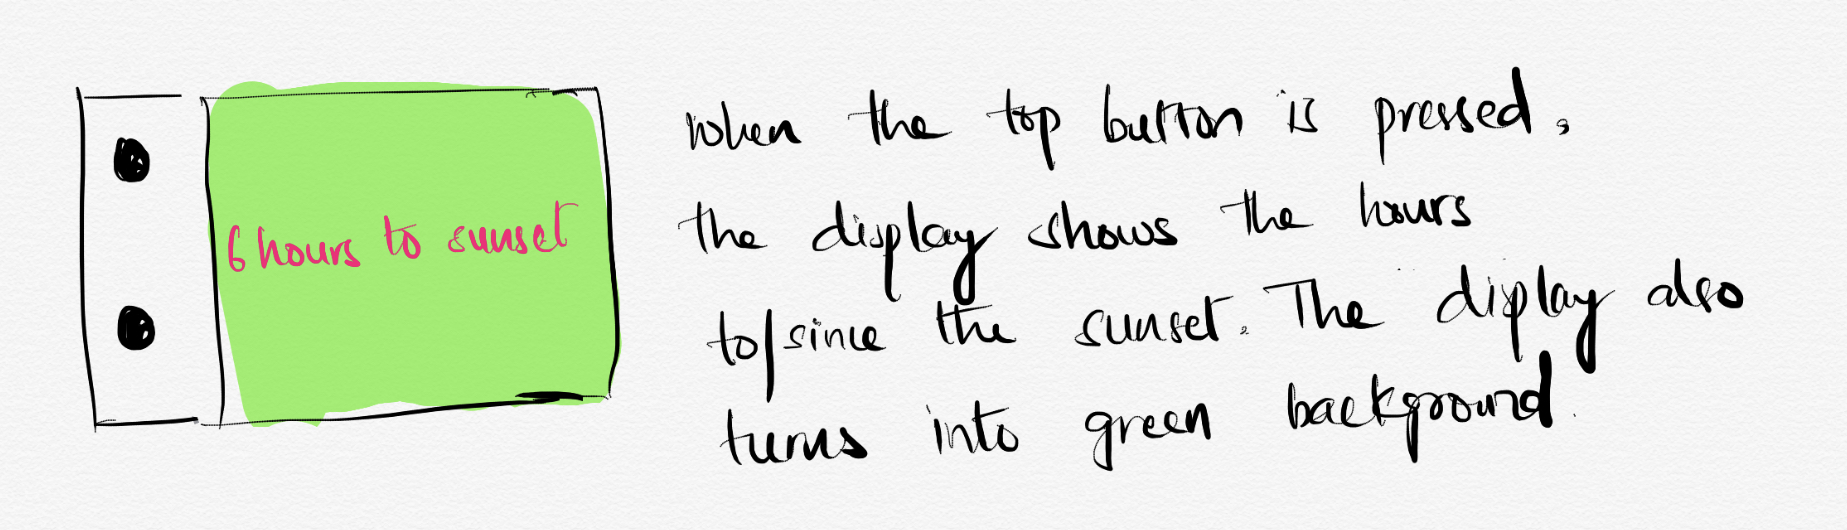 6 hours to sunset
when the top button is pressed,
the display shows the hours
to/since the sunset. The display also
turns into green background.